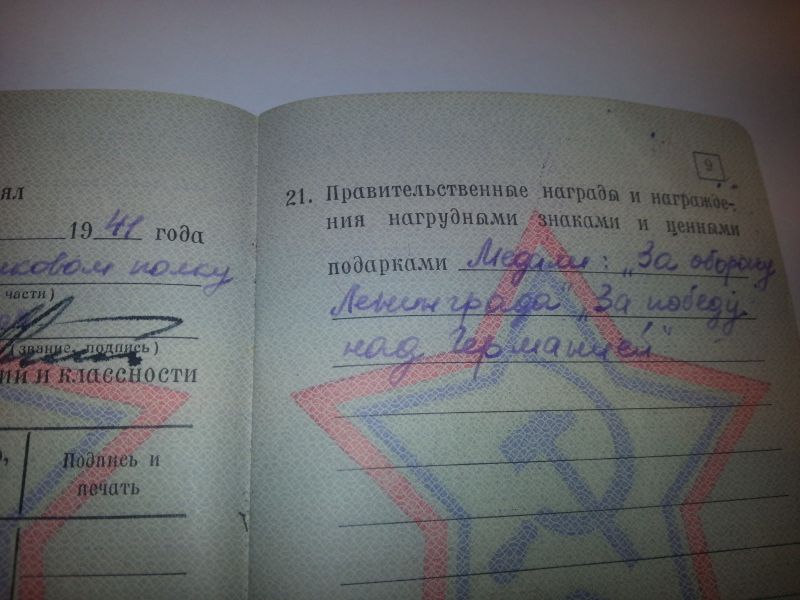 ял
19 41 года
ковом полку
части)
(звание, подпись)
ий и классности
Подпись и
печать
9
21. Правительственные награды и награжде-
ния нагрудными знаками и ценными
подарками Медали: „За оборону
Ленинграда" „За победу
над Германией"